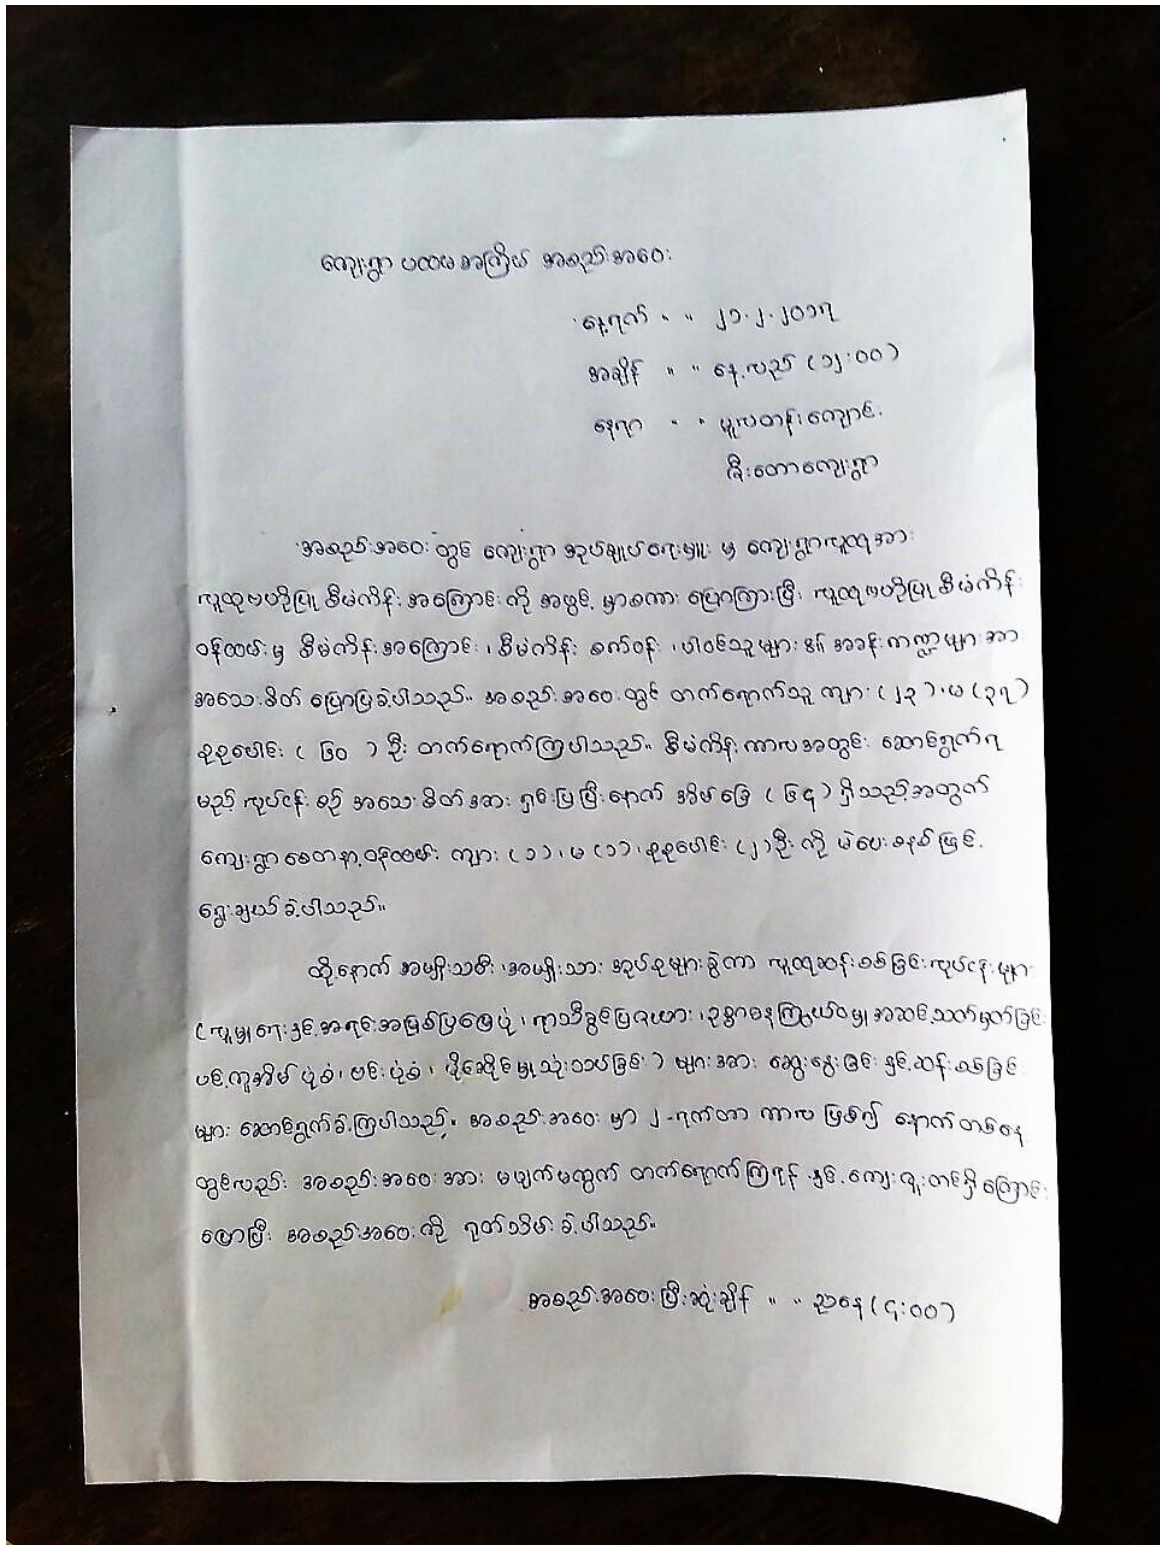 ကျေးရွာ ပထမ အကြိမ် အစည်းအဝေး
နေ့ရက် " " ၂၁.၂.၂၀၁၇
အချိန် " " နေ့လည် (၁၂:၀၀)
နေရာ " " မူလတန်းကျောင်း
ဇီးတောကျေးရွာ
အစည်းအဝေး တွင် ကျေးရွာ အုပ်ချုပ်ရေးမှူး မှ ကျေးရွာလူထုအား
လူထုဗဟိုပြု စီမံကိန်း အကြောင်း ကို အဖွင့် မှာစကား ပြောကြားပြီး လူထုဗဟိုပြု စီမံကိန်း
ဝန်ထမ်း မှ စီမံကိန်း အကြောင်း ၊ စီမံကိန်း စက်ဝန်း ၊ ပါဝင်သူများ ၏ အခန်းကဏ္ဍများ အား
အသေးစိတ် ပြောပြခဲ့ပါသည်။ အစည်းအဝေး တွင် တက်ရောက်သူ ကျား (၂၃) ၊ မ (၃၇)
စုစုပေါင်း (၆၀) ဦး တက်ရောက်ကြပါသည်။ စီမံကိန်း ကာလအတွင်း ဆောင်ရွက်ရ
မည့် လုပ်ငန်း စဉ် အသေးစိတ်အား ရှင်းပြပြီးနောက် အိမ်ခြေ (၆၄) ရှိသည့်အတွက်
ကျေးရွာစေတနာ့ဝန်ထမ်း ကျား (၁) ၊ မ (၁) ၊ စုစုပေါင်း (၂) ဦး ကို မဲပေးစနစ်ဖြင့်
ရွေးချယ်ခဲ့ပါသည်။
ထို့နောက် အမျိုးသမီး ၊ အမျိုးသား အုပ်စုများခွဲကာ လူထုဆန်းစစ်ခြင်းလုပ်ငန်းများ
(လူမှုရေးနှင့်အရင်းအမြစ်ပြမြေပုံ ၊ ရာသီခွင်ပြဇယား ၊ ဥစ္စာဓနကြွယ်ဝမှု အဆင့်သတ်မှတ်ခြင်း
ပင့်ကူအိမ် ပုံစံ ၊ ဗင်းပုံစံ ၊ ပိုင်ဆိုင်မှုသုံးသပ်ခြင်း) များအား ဆွေးနွေးခြင်း နှင့် ဆန်းစစ်ခြင်း
များ ဆောင်ရွက်ခဲ့ကြပါသည်။ အစည်းအဝေး မှာ ၂-ရက်တာ ကာလ ဖြစ်၍ နောက်တစ်နေ့
တွင်လည်း အစည်းအဝေး အား မပျက်မကွက် တက်ရောက်ကြရန် နှင့် ကျေးဇူးတင်ရှိကြောင်း
ပြောပြီး အစည်းအဝေး ကို ရုတ်သိမ်းခဲ့ပါသည်။
အစည်းအဝေးပြီးဆုံးချိန် " " ညနေ (၄:၀၀)